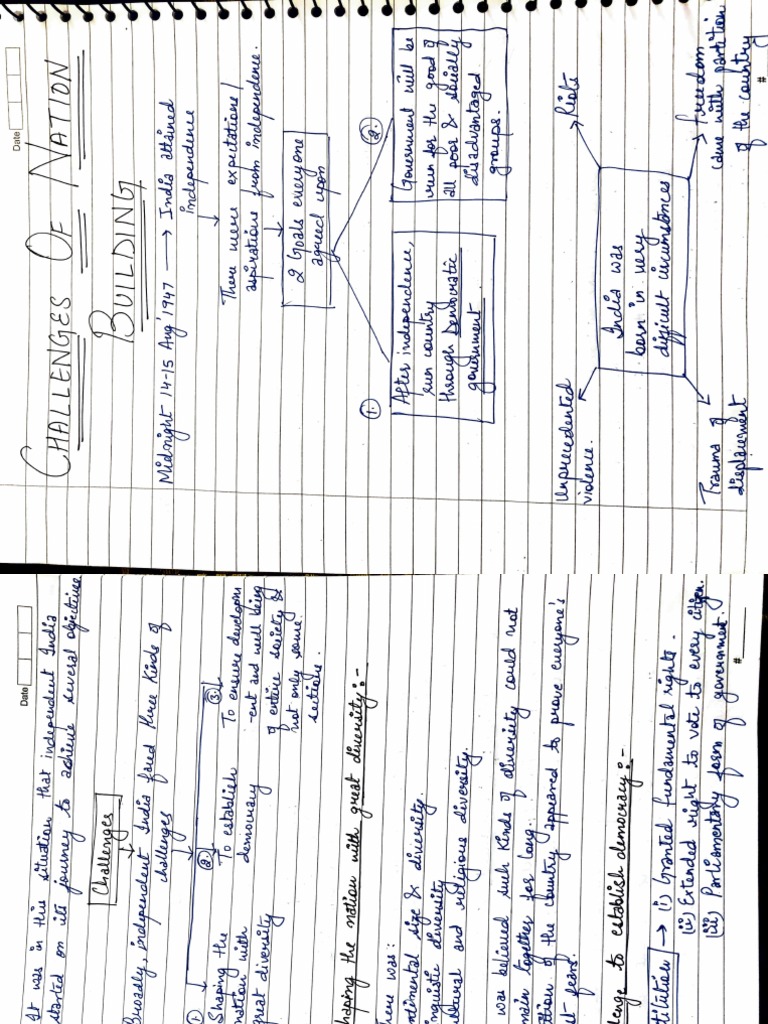 Date
CHALLENGES OF NATION
BUILDING
Midnight 14-15 Aug '1947 → India attained
independence
There were expectations/
aspirations from independence.
2 Goals everyone
agreed upon
1.
After independence,
run country
through Democratic
government.
2.
Government will be
run for the good of
all poor & socially
disadvantaged
groups.
Unprecedented
violence.
Riots
India was
born in very
difficult circumstances
Trauma of
displacement
Freedom
came with partition
of the country
#
Date
It was in this situation that independent India
started on its journey to achieve several objectives
Challenges
Broadly, independent India faced three kinds of
challenges
Shaping the
nation with
great diversity
2.
To establish
democracy
3.
To ensure developm
-ent and well being
of entire society &
not only some
sections.
haping the nation with great diversity:-
here was:
ntinental size & diversity.
inguistic diversity
ltural and religious diversity.
was believed such kinds of diversity could not
main together for long.
tition of the country appeared to prove everyone's
st fears.
lenge to establish democracy:-
titution → (i) Granted fundamental rights.
(ii) Extended right to vote to every citizen.
(iii) Parliamentary form of government.
#